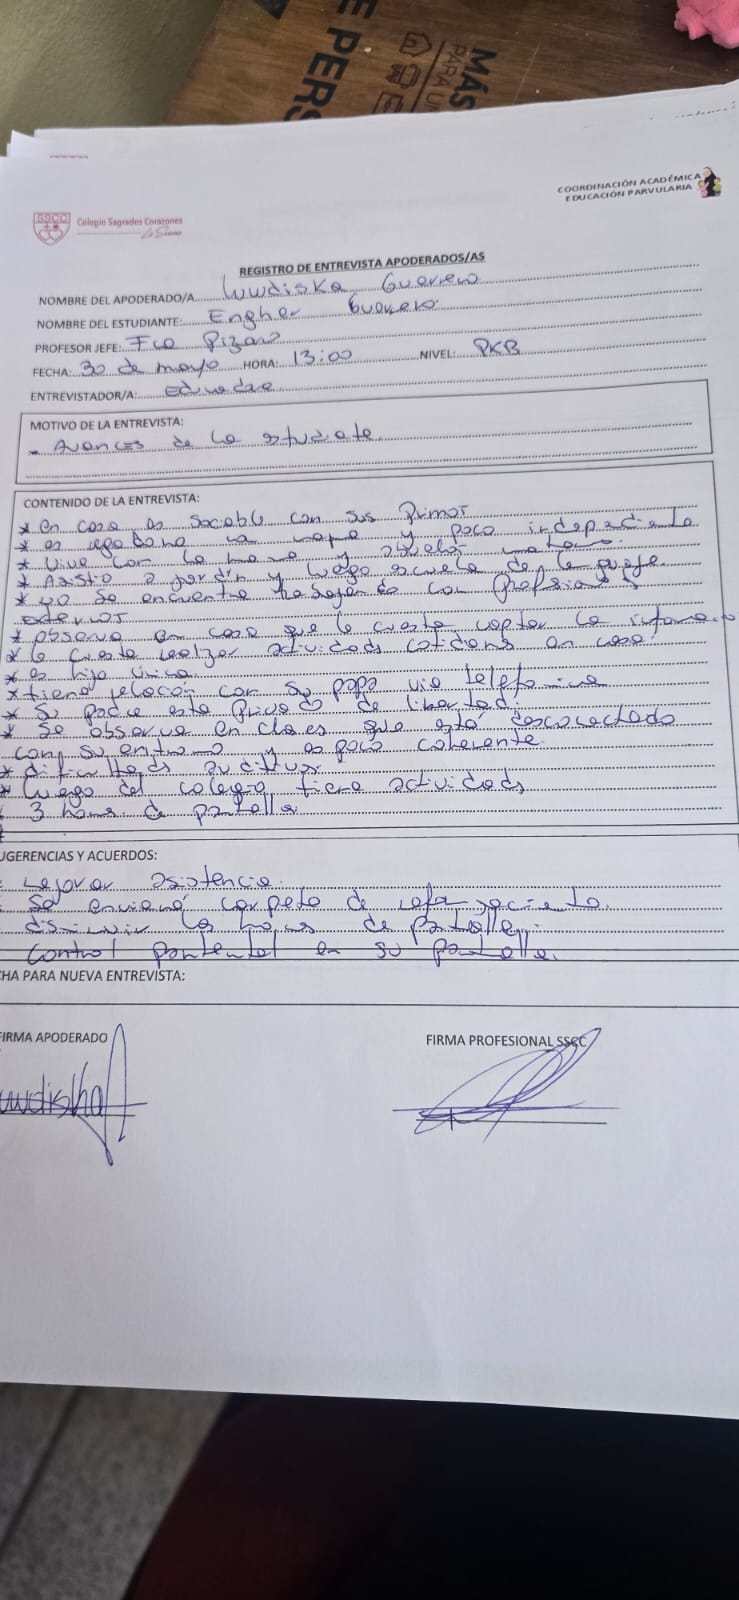 E PERS
MÁS
PARA U
COORDINACIÓN ACADÉMICA
EDUCACIÓN PARVULARIA
SSCC
Colegio Sagrados Corazones
La Serena
REGISTRO DE ENTREVISTA APODERADOS/AS
NOMBRE DEL APODERADO/A Luwdiska Guerrero
NOMBRE DEL ESTUDIANTE: Engher Guerrero.
PROFESOR JEFE: Fca Pizarro
FECHA: 30 de mayo HORA: 13:00 NIVEL: PKB
ENTREVISTADOR/A: educadora
MOTIVO DE LA ENTREVISTA:
- Avances de la estudiate
CONTENIDO DE LA ENTREVISTA:
* en casa es sociable con sus Primos
* es y poco independiente
* Vive con la mama y abuelos
* Asistio a jardin y luego escuela de lenguaje.
* no se encuentra con profesionales
externos
* observa en casa que le cuesta captar la
* le cuesta realizar actividads en casa.
* es hijo único
* tiene relación con su papa via telefonica
* Su padre esta Privado de libertad.
* Se observa en clases que está desconectado
con su entorno y es poco coherente.
* dificultads auditivas
* luego del colegio tiene actividads
3 horas de pantalla
UGERENCIAS Y ACUERDOS:
Mejorar asistencia
Se enviará carpeta de reforzaciento.
disminuir las horas de Pantalla.
Control parental en su pantalla.
CHA PARA NUEVA ENTREVISTA:
FIRMA APODERADO
FIRMA PROFESIONAL SSCC
uwdiska